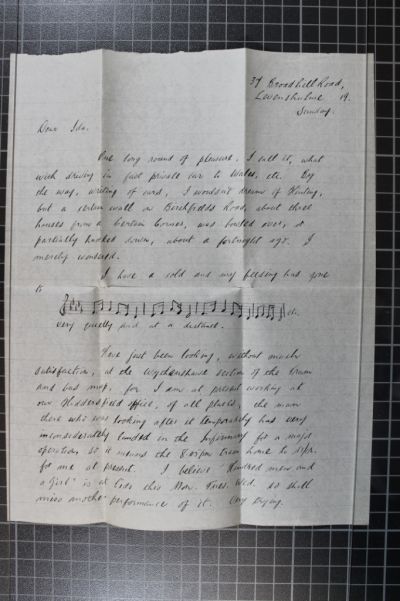 37 Broadhill Road,
Levenshulme 19.
Sunday.
Dear Ida.
One long round of pleasure, I call it, what
with driving in fast private car to Wales, etc. By
the way, writing of cars, I wouldn't dream of hinting,
but a certain wall on Birchfields Road, about three
houses from a certain corner, was bowled over, or
partially knocked down, about a fortnight ago. I
merely wondered.
I have a cold and my has gone
to
etc.
very quietly and at a distance.
Have just been looking, without much
satisfaction, at the Wythenshawe section of the tram
and bus map, for I am at present working at
our Huddersfield office, of all places, the man
there who was looking after it temporarily has very
inconsiderately landed in the Infirmary for a major
operation, so it means the train home to
for me at present. I believe "Hundred men and
a Girl" is at this Mon. Tues. Wed. so shall
miss another performance of it. Very trying.